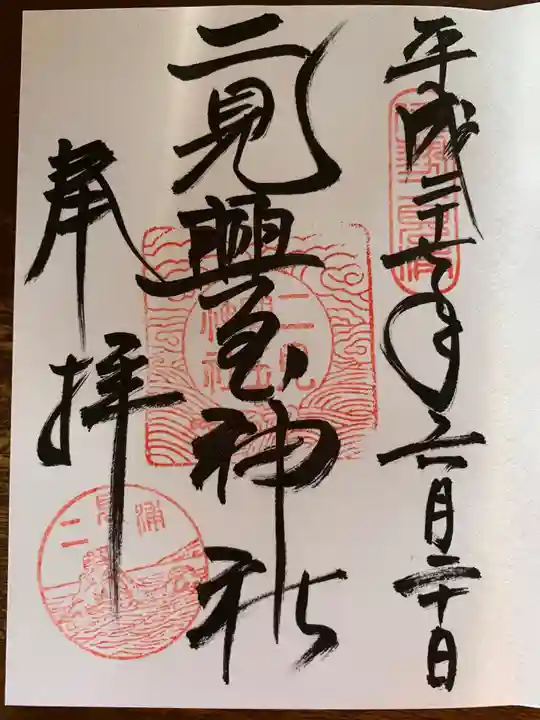 平成二十七年六月二十日
二見興玉神社
奉拝
二見
神社
二見浦